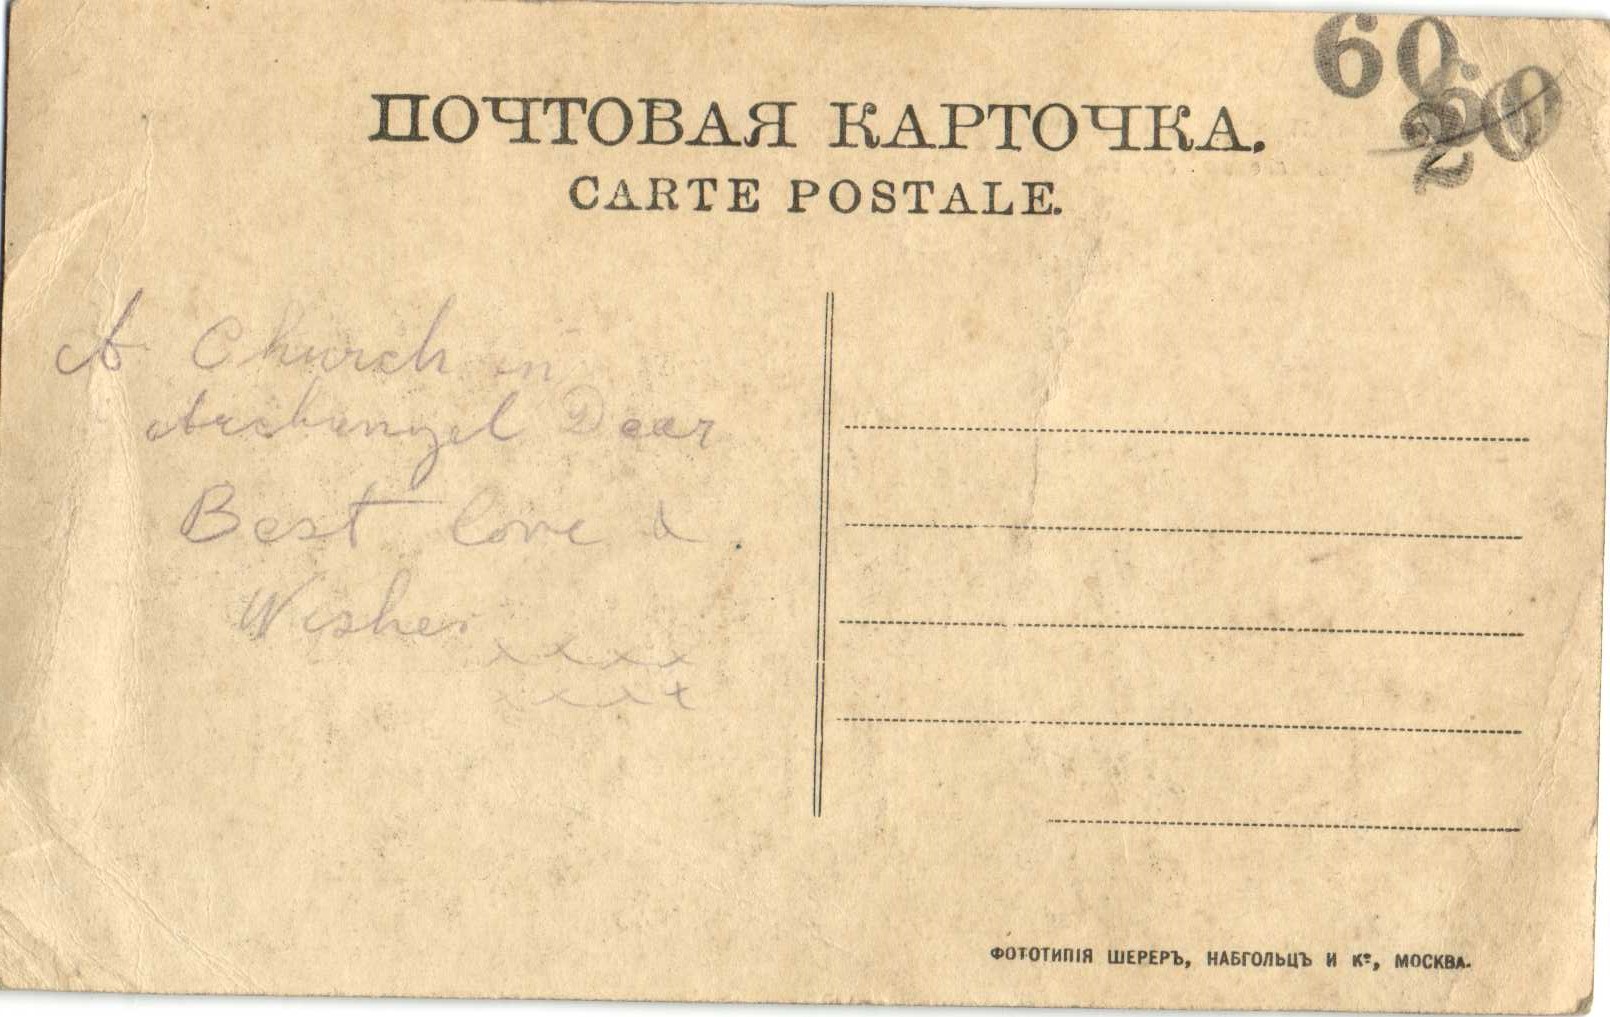 60
60
20
ПОЧТОВАЯ КАРТОЧКА.
CARTE POSTALE.
A Church in
Archangel Dear
Best love &
Wishes
xxxx
xxxx
ФОТОТИПІЯ ШЕРЕРЪ, НАБГОЛЬЦЪ И Кº, МОСКВА.